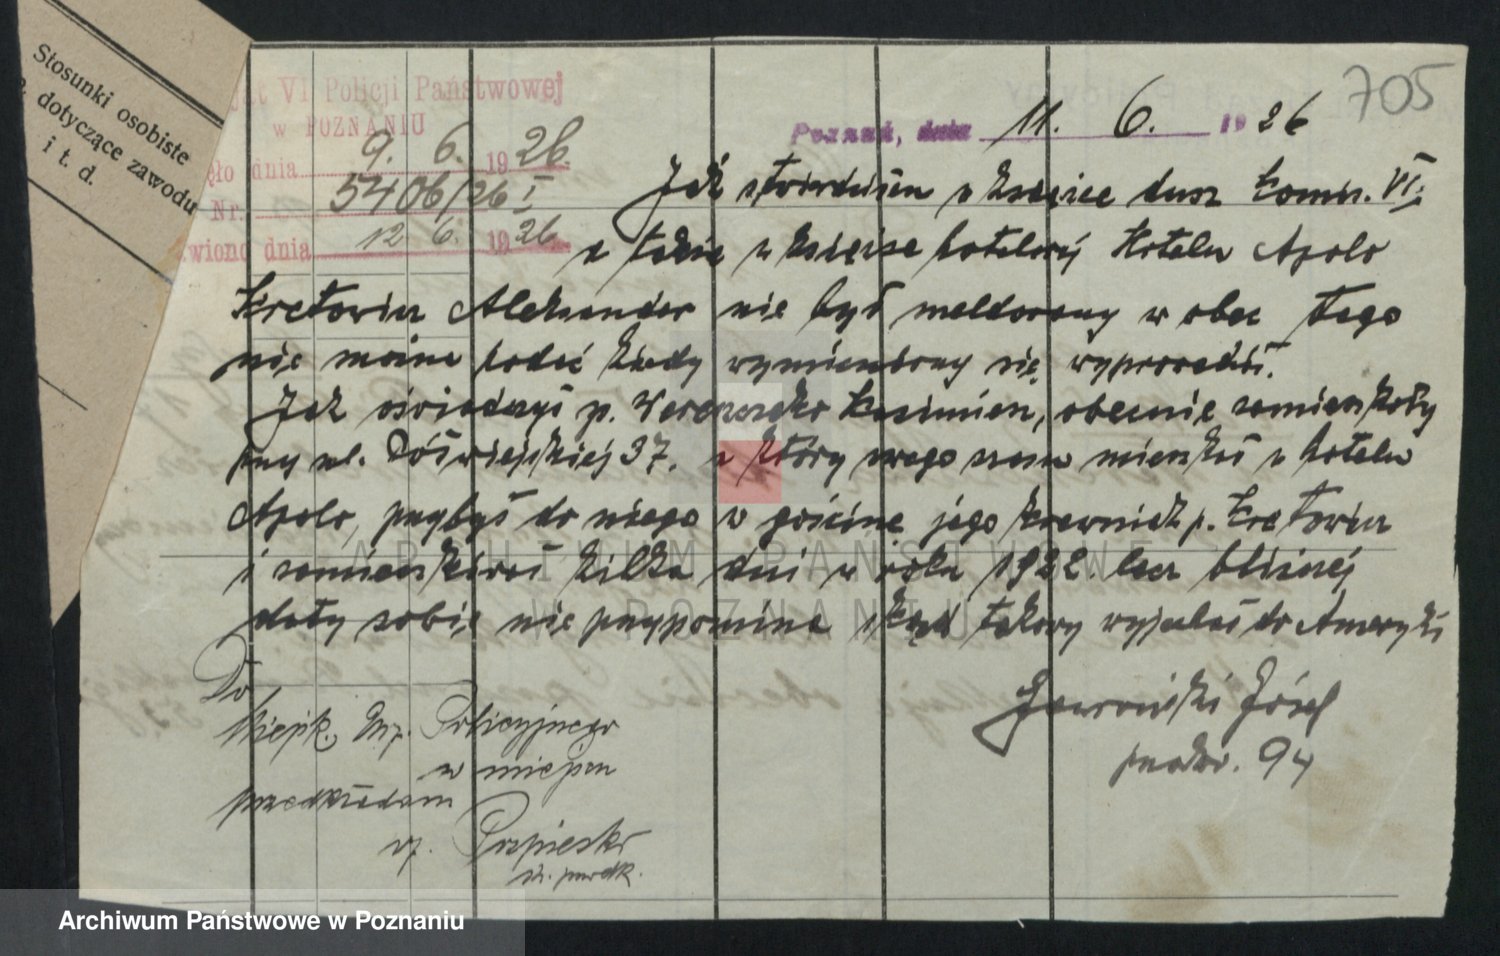 Stosunki osobiste
dotyczące zawodu
i t. d.
705
VI Policji Państwowej
w POZNANIU
dnia 9. 6. 1926.
Nr. 5406/26 I
dnia 12. 6. 1926
Poznań, dnia 11. 6. 1926
Jak stwierdziłem w książce dusz Komis. VI.
a także w książce hotelowej Hotelu Apolo
Kretowicz Aleksander nie był meldowany w obec tego
nie można podać kiedy wymieniony się wyprowadził.
Jak oświadczył p. Wereszczako Kazimierz, obecnie zamieszkały
przy ul. 37. a który swego czasu mieszkał w hotelu
Apolo, przybył do niego w gościnę jego krewniak p. Kretowicz
i zamieszkiwał kilka dni w roku 1922. lecz bliższej
daty sobie nie przypomina skąd takowy wyjechał do Ameryki
Józef
94
Do
Miejsk. Urz. Policyjnego
w miejscu
przedkładam
ARCHIWUM PAŃSTWOWE
W POZNANIU
Archiwum Państwowe w Poznaniu